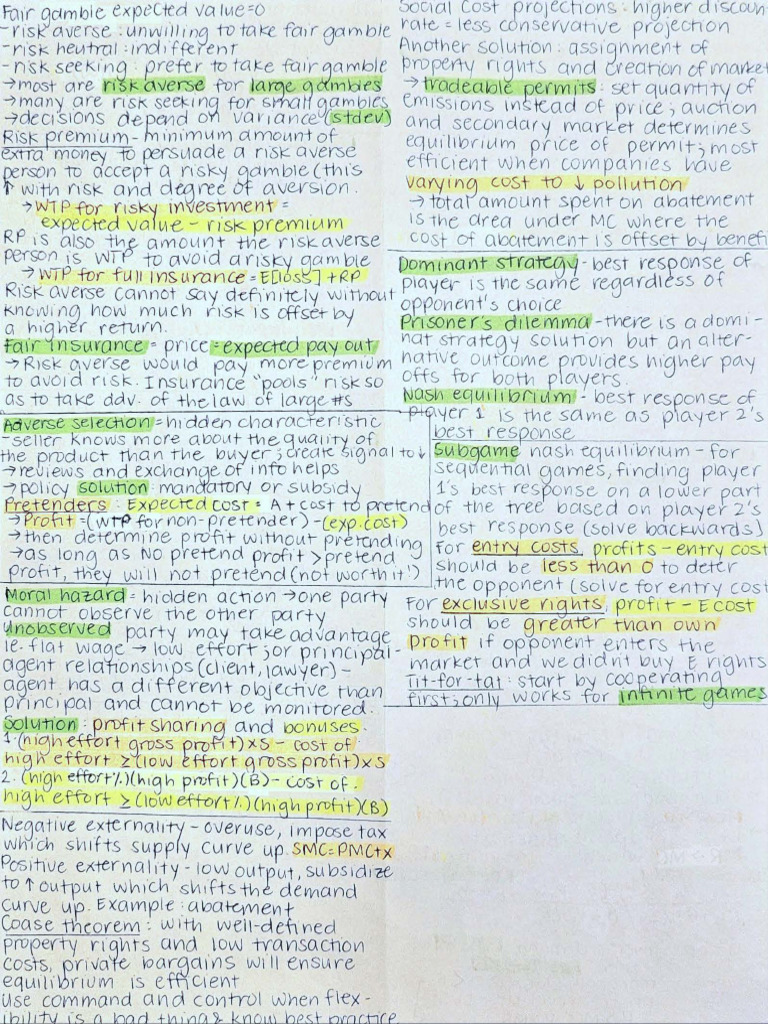 Fair gamble expected value=0
-risk averse: unwilling to take fair gamble
-risk neutral: indifferent
-risk seeking: prefer to take fair gamble
→most are risk averse for large gambles
→many are risk seeking for small gambles
→decisions depend on variance (stdev)
Risk premium - minimum amount of
extra money to persuade a risk averse
person to accept a risky gamble (this
↑ with risk and degree of aversion.
→WTP for risky investment =
expected value - risk premium
RP is also the amount the risk averse
person is WTP to avoid a risky gamble
→ WTP for full insurance = E[loss] + RP
Risk averse cannot say definitely without
knowing how much risk is offset by
a higher return.
Fair insurance = price = expected pay out
→ Risk averse would pay more premium
to avoid risk. Insurance "pools" risk so
as to take adv. of the law of large #s
Adverse selection = hidden characteristic
-seller knows more about the quality of
the product than the buyer; create signal to ↓
→reviews and exchange of info helps
→policy solution: mandatory or subsidy
Pretenders: Expected cost = A + cost to pretend
→Profit - (WTP for non-pretender) - (exp. cost)
→then determine profit without pretending
→as long as NO pretend profit > pretend
profit, they will not pretend (not worth it!)
Moral hazard = hidden action → one party
cannot observe the other party
unobserved party may take advantage
ie. flat wage → low effort; or principal-
agent relationships (client, lawyer) -
agent has a different objective than
principal and cannot be monitored.
Solution: profit sharing and bonuses.
1. (high effort gross profit) x S - cost of
high effort ≥ (low effort gross profit) x S
2. (high effort %)(high profit)(B) - cost of
high effort ≥ (low effort %)(high profit)(B)
Negative externality - overuse, impose tax
which shifts supply curve up. SMC=PMC+X
Positive externality - low output, subsidize
to ↑ output which shifts the demand
curve up. Example: abatement
Coase theorem: with well-defined
property rights and low transaction
costs, private bargains will ensure
equilibrium is efficient
Use command and control when flex-
ibility is a bad thing & know best practice
Social Cost projections: higher discoun
rate = less conservative projection
Another solution: assignment of
property rights and creation of market
→ tradeable permits: set quantity of
emissions instead of price; auction
and secondary market determines
equilibrium price of permit; most
efficient when companies have
varying cost to ↓ pollution
→ total amount spent on abatement
is the area under MC where the
cost of abatement is offset by benefi
Dominant strategy - best response of
player is the same regardless of
opponent's choice
Prisoner's dilemma - there is a domi-
nat strategy solution but an alter-
native outcome provides higher pay
offs for both players.
Nash equilibrium - best response of
player 1 is the same as player 2's
best response
Subgame nash equilibrium - for
sequential games, finding player
1's best response on a lower part
of the tree based on player 2's
best response (solve backwards)
For entry costs, profits - entry cost
should be less than 0 to deter
the opponent (solve for entry cost
For exclusive rights, profit - E cost
should be greater than own
profit if opponent enters the
market and we didnt buy E rights
Tit-for-tat: start by cooperating
first; only works for infinite games